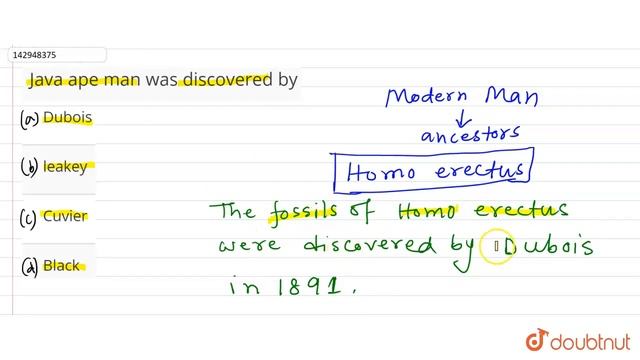 142948375
Java ape man was discovered by
(a) Dubois
(b) leakey
(c) Cuvier
(d) Black
Modern Man
↓
ancestors
Homo erectus
The fossils of Homo erectus
were discovered by Dubois
in 1891.
doubtnut